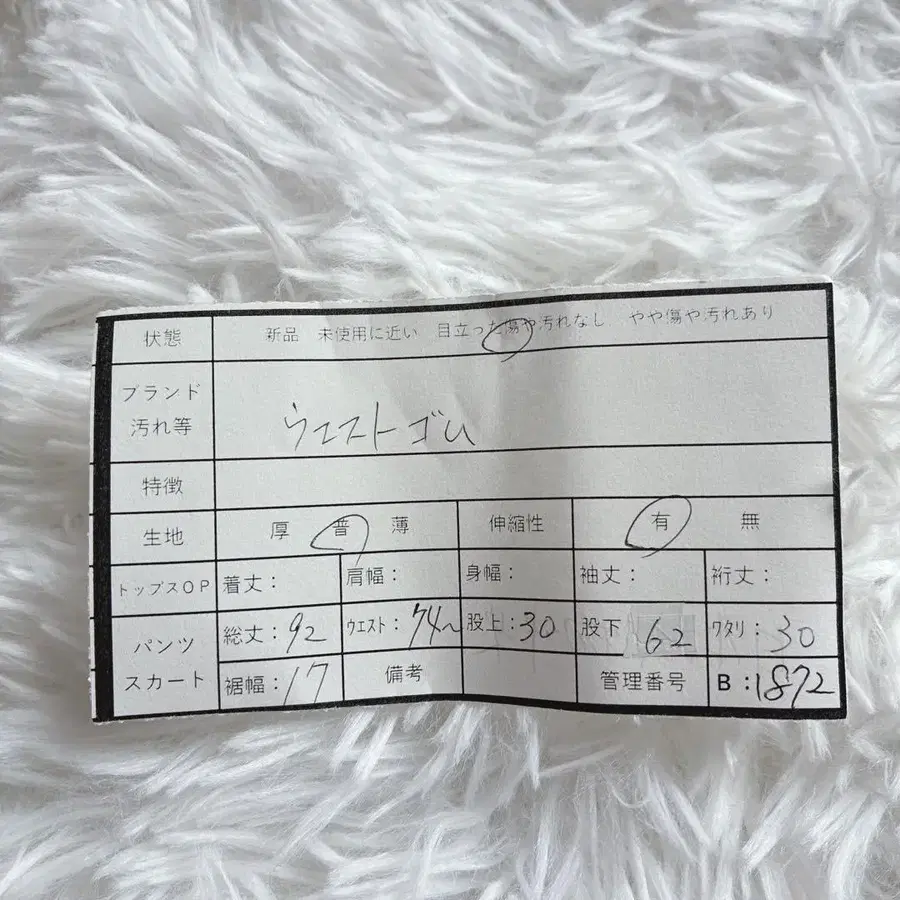 状態 新品 未使用に近い 目立った傷や汚れなし やや傷や汚れあり
ブランド
汚れ等 ウエストゴム
特徴
生地 厚 普 薄 伸縮性 有 無
トップスOP 着丈： 肩幅： 身幅： 袖丈： 裄丈：
パンツ
スカート
総丈：92 ウエスト：74~ 股上：30 股下 62 ワタリ：30
裾幅：17 備考 管理番号 B：1872